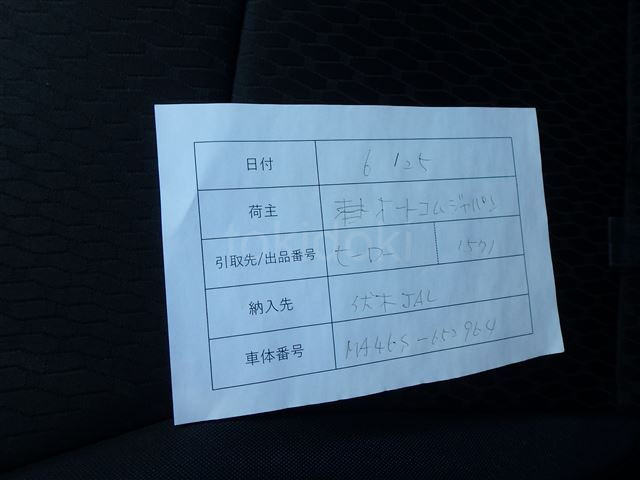 日付 6/25
荷主 オートコムジャパン
引取先/出品番号 ヒーロー 1571
納入先 伏木JAL
車体番号 MA46S-652964